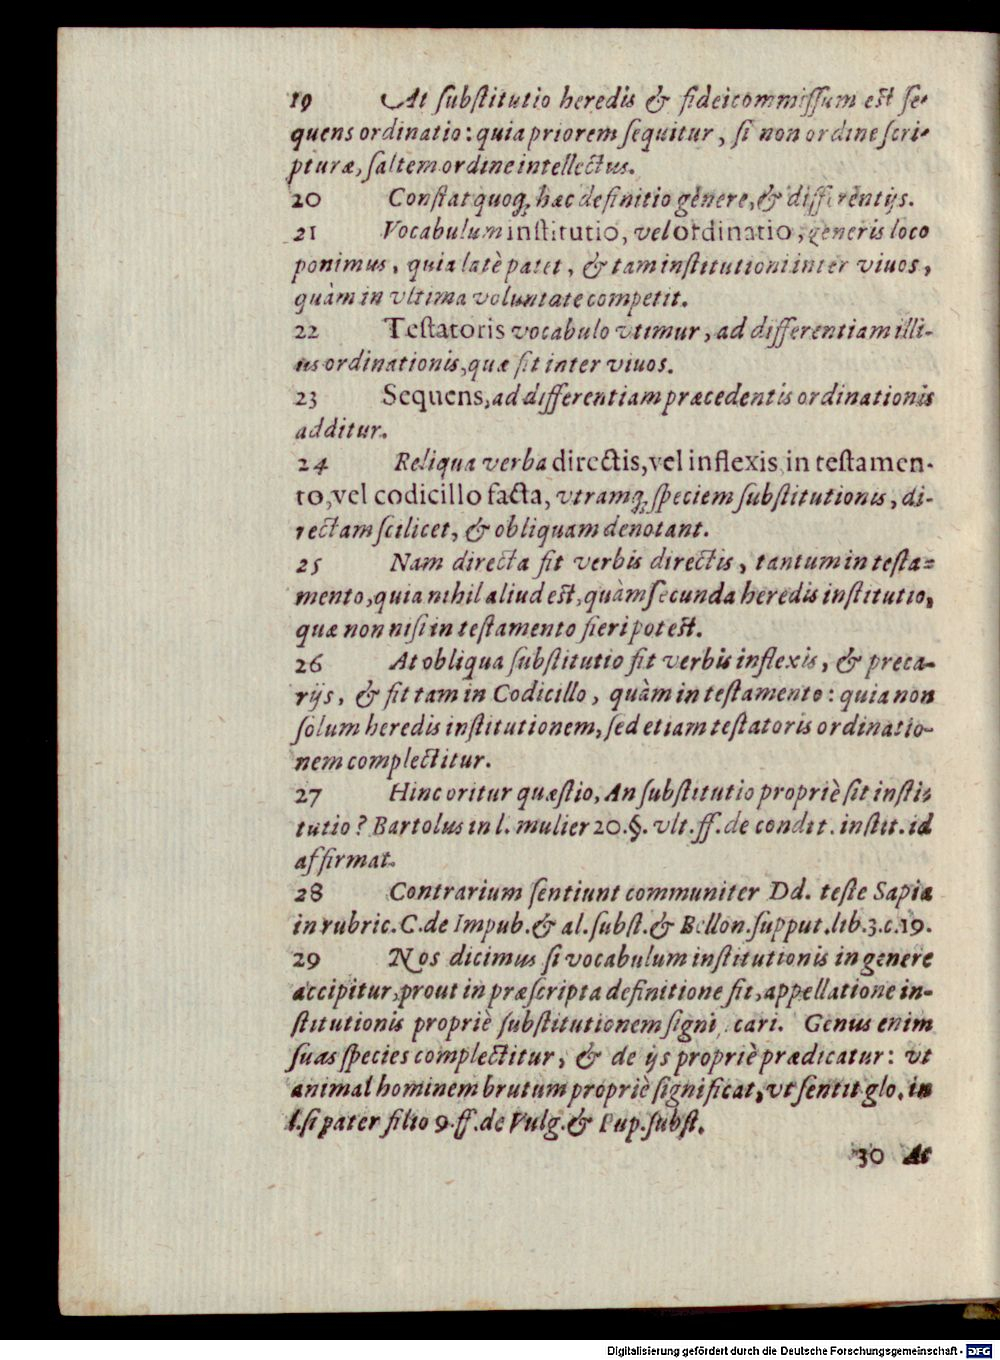 19 At ſubſtitutio heredis & fideicommiſſum eſt ſe-
quens ordinatio: quia priorem ſequitur, ſi non ordine ſcri-
pturæ, ſaltem ordine intellectus.
20 Conſtat quoq́; hæc definitio genere, & differentijs.
21 Vocabulum inſtitutio, vel ordinatio, generis loco
ponimus, quia latè patet, & tam inſtitutioni inter viuos,
quàm in vltima voluntate competit.
22 Teſtatoris vocabulo vtimur, ad differentiam illi-
us ordinationis, quæ fit inter viuos.
23 Sequens, ad differentiam præcedentis ordinationis
additur.
24 Reliqua verba directis, vel inflexis in teſtamen-
to, vel codicillo facta, vtramq́; ſpeciem ſubſtitutionis, di-
rectam ſcilicet, & obliquam denotant.
25 Nam directa fit verbis directis, tantum in teſta-
mento, quia nihil aliud eſt, quàm ſecunda heredis inſtitutio,
quæ non niſi in teſtamento fieri poteſt.
26 At obliqua ſubſtitutio fit verbis inflexis, & preca-
rijs, & fit tam in Codicillo, quàm in teſtamento: quia non
ſolum heredis inſtitutionem, ſed etiam teſtatoris ordinatio-
nem complectitur.
27 Hinc oritur quæſtio, An ſubſtitutio propriè ſit inſti-
tutio? Bartolus in l. mulier 20. §. vlt. ff. de condit. inſtit. id
affirmat.
28 Contrarium ſentiunt communiter Dd. teſte Sapia
in rubric. C. de Impub. & al. ſubſt. & Bellon. ſupput. lib. 3. c. 19.
29 Nos dicimus ſi vocabulum inſtitutionis in genere
accipitur, prout in præſcripta definitione fit, appellatione in-
ſtitutionis propriè ſubſtitutionem ſignificari. Genus enim
ſuas ſpecies complectitur, & de ijs propriè prædicatur: vt
animal hominem brutum propriè ſignificat, vt ſentit glo. in
l. ſi pater filio 9. ff. de Vulg. & Pup. ſubſt.
30 At
Digitalisierung gefördert durch die Deutsche Forschungsgemeinschaft - DFG